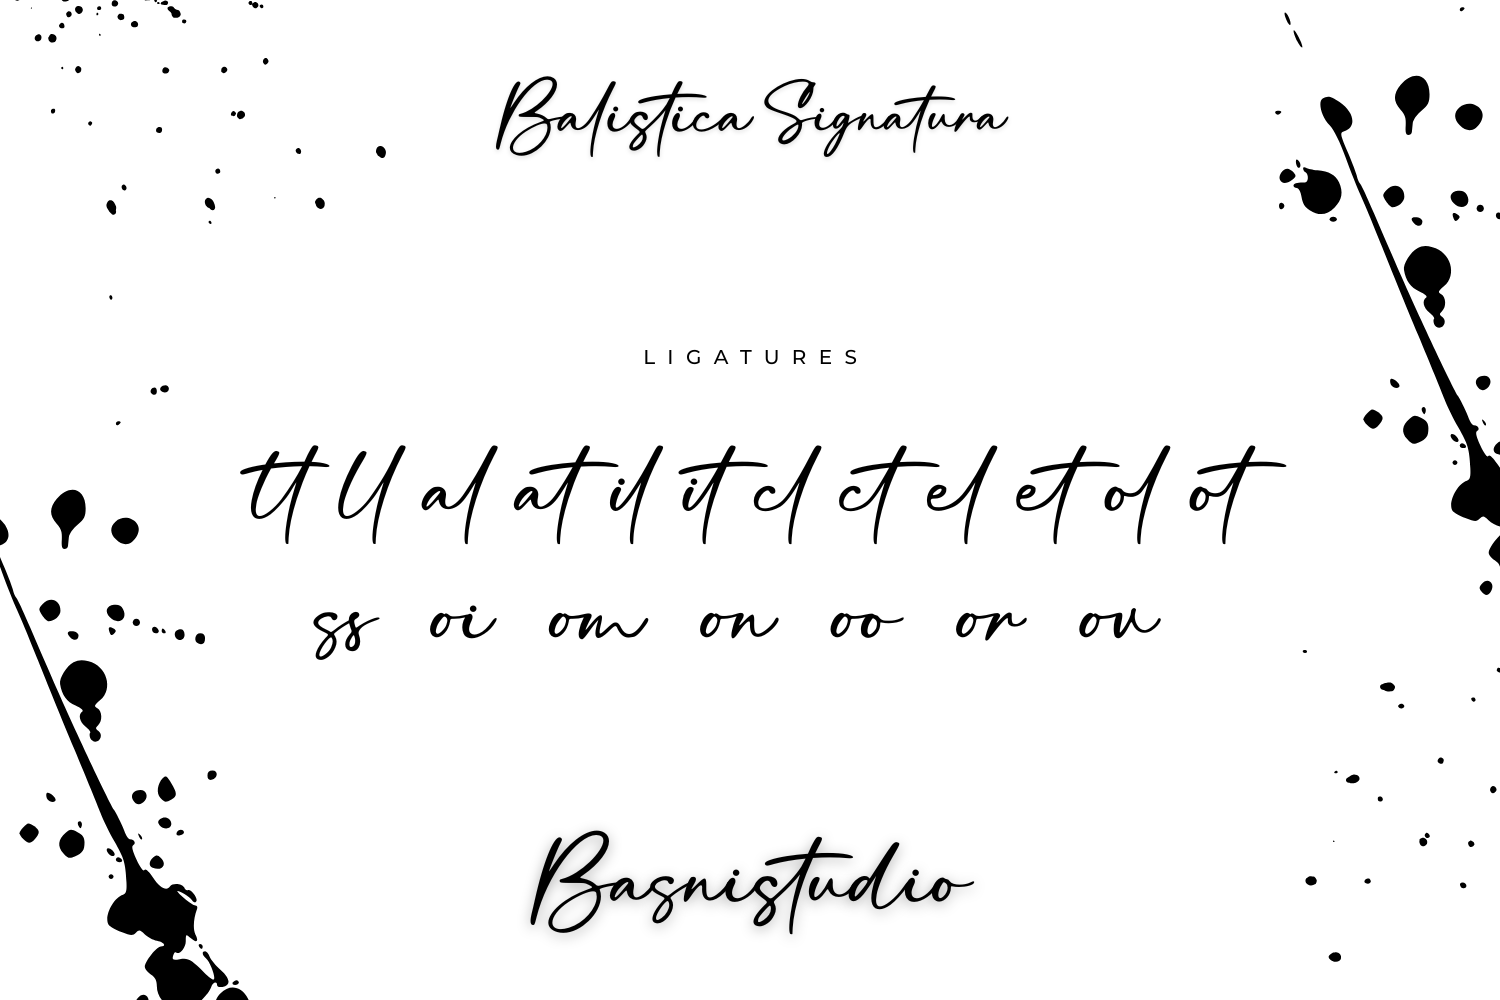 Balistica Signatura
LIGATURES
tt ll al at il it cl ct el et ol ot
ss oi om on oo or ov
Basnistudio